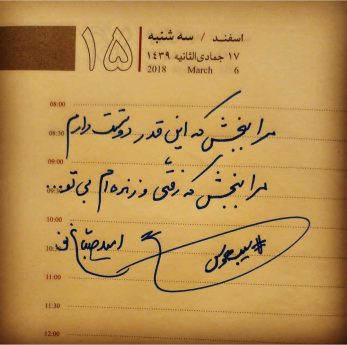 اسفند / سه شنبه
۱۵
۱۷ جمادی الثانیه ۱۴۳۹
2018 March 6
08:00
مرا ببخش که این قدر دوستت دارم
08:30
09:00
مرا ببخش که رفتی و زنده ام بی تو...
09:30
10:00
امید صباغ نو
10:30
#سیب_هوس
11:00
11:30
12:00